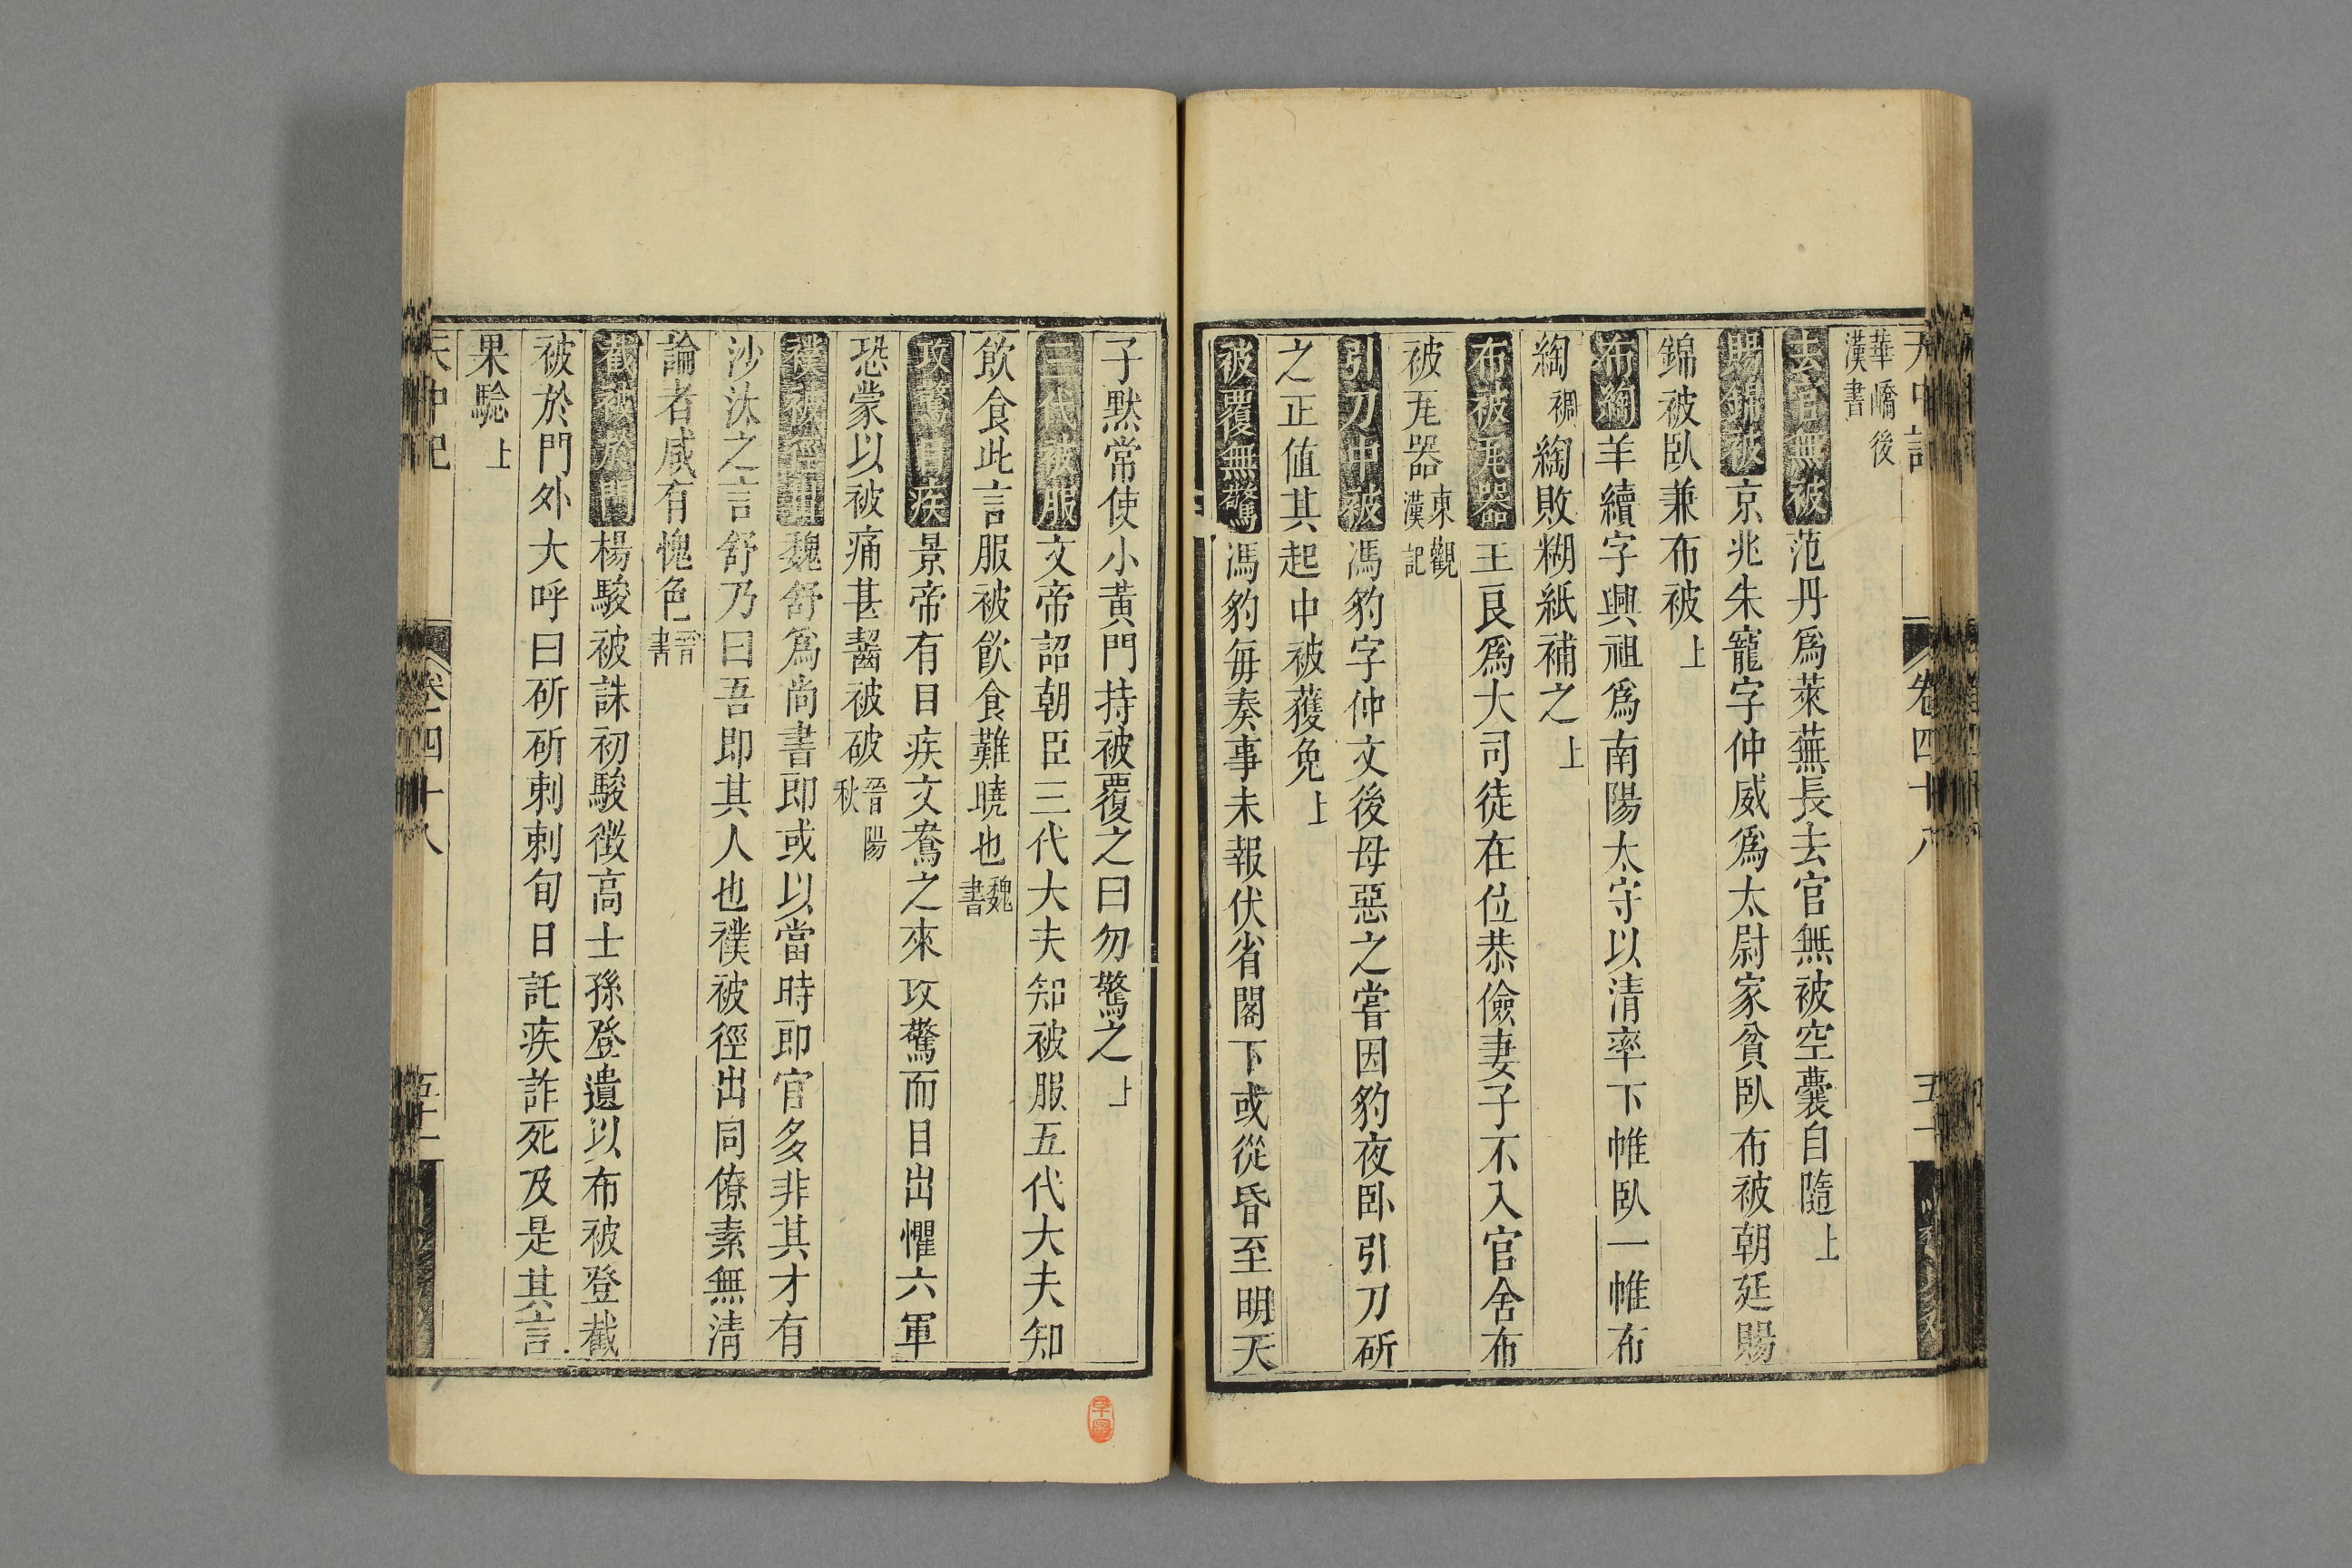 華嶠後漢書
去官無被范丹爲萊蕪長去官無被空囊自隨上
賜錦被京兆朱寵字仲威爲太尉家貧臥布被朝廷賜
錦被臥兼布被上
布綯羊續字興祖爲南陽太守以清率下帷臥一帷布
綯裯綯敗糊紙補之上
布被瓦器王良爲大司徒在位恭儉妻子不入官舍布
被瓦器東觀漢記
引刀中被馮豹字仲文後母惡之嘗因豹夜卧引刀斫
之正值其起中被獲免上
被覆無驚馮豹每奏事未報伏省閣下或從昏至明天
子默常使小黃門持被覆之曰勿驚之上
三代被服文帝詔朝臣三代大夫知被服五代大夫知
飲食此言服被飲食難曉也魏書
攻驚目疾景帝有目疾文鴦之來攻驚而目出懼六軍
恐蒙以被痛甚齧被破晉陽秋
襆被徑出魏舒爲尚書即或以當時即官多非其才有
沙汰之言舒乃曰吾即其人也襆被徑出同僚素無清
論者咸有愧色晉書
截被於門楊駿被誅初駿徴高士孫登遺以布被登截
被於門外大呼曰斫斫刺刺旬日託疾詐死及是其言
果驗上
天中記
卷四十八